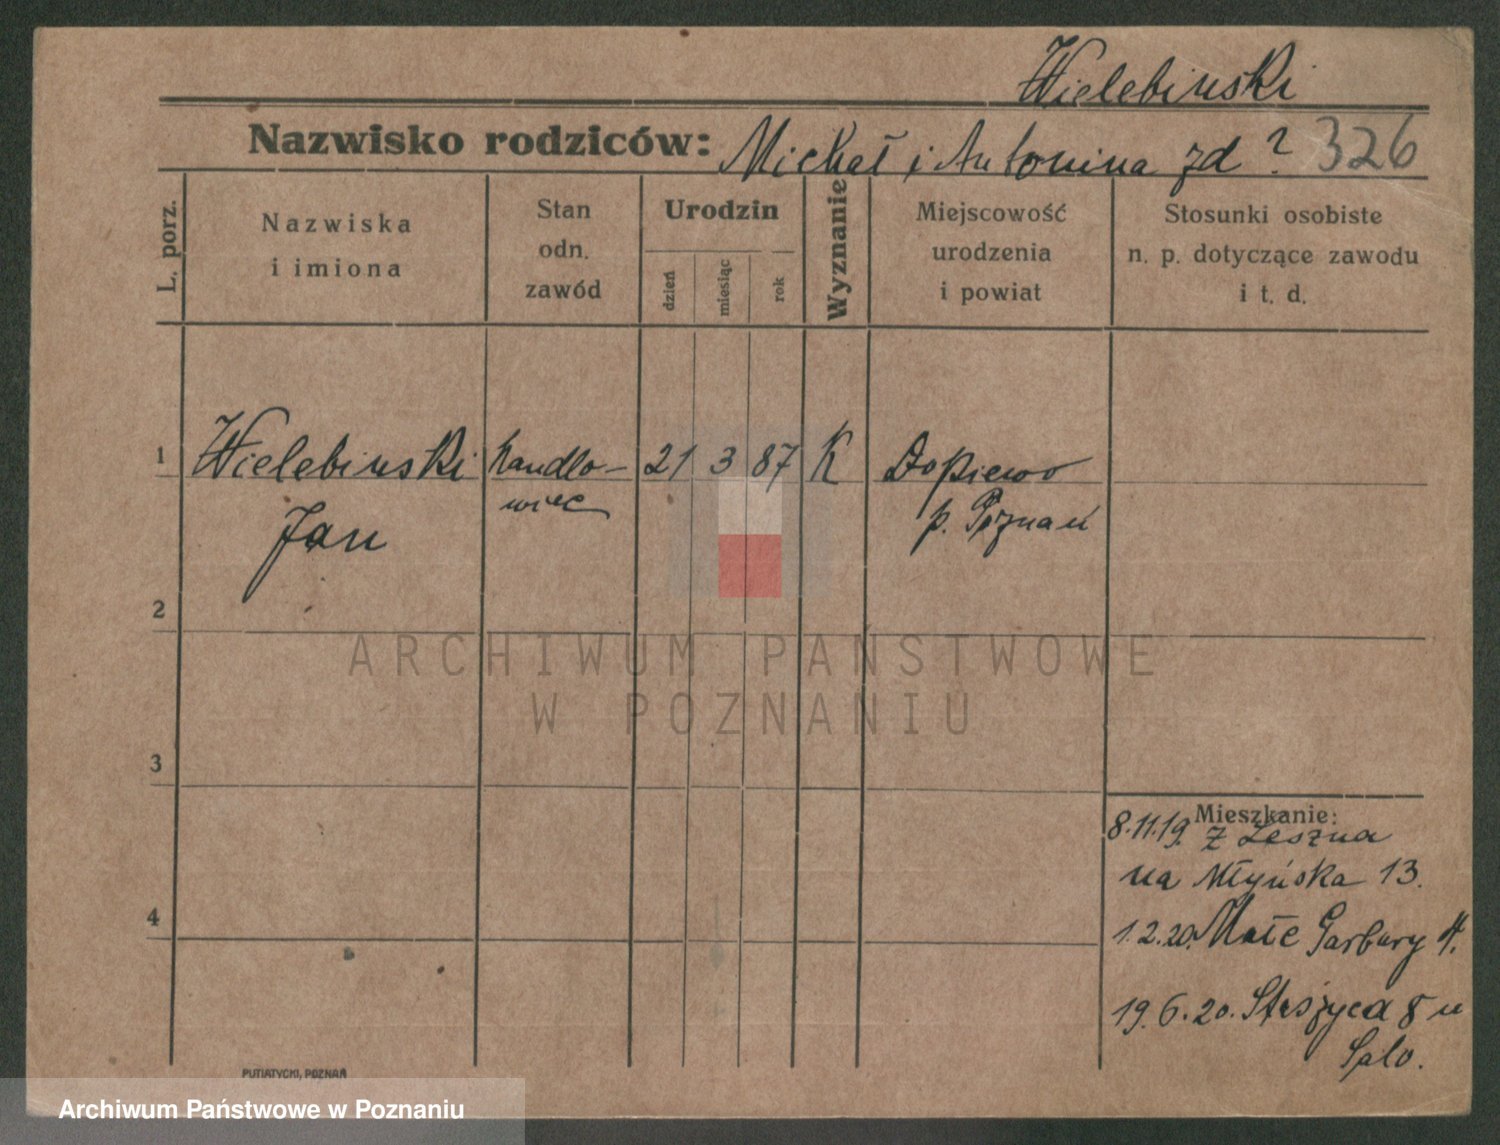 Wielebinski
Nazwisko rodziców: Michał i Antonina zd ? 326
L. porz.
Nazwiska
i imiona
Stan
odn.
zawód
Urodzin
dzień
miesiąc
rok
Wyznanie
Miejscowość
urodzenia
i powiat
Stosunki osobiste
n. p. dotyczące zawodu
i t. d.
1 Wielebinski handlo- 21 3 87 K Dopiewo
Jan wiec p. Poznań
2
ARCHIWUM PAŃSTWOWE
W POZNANIU
3
Mieszkanie:
8.11.19. z Leszna
na Młyńska 13.
4
1.2.20. Małe Garbary 4.
19.6.20. Staszyca 8 u
PUTIATYCKI, POZNAŃ
Archiwum Państwowe w Poznaniu